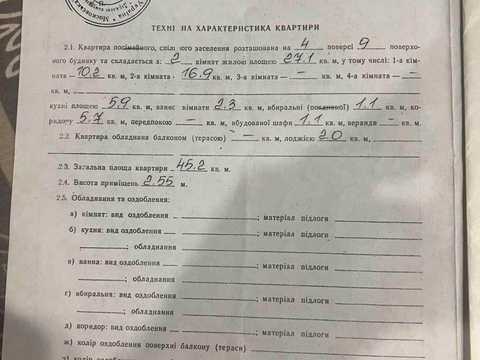 Україна
ТЕХНІ НА ХАРАКТЕРИСТИКА КВАРТИРИ
2.1. Квартира посімейного, спільного заселення розташована на 4 поверсі 9 поверхо-
вого будинку та складається з: 2 кімнат жилою площею 27.1 кв. м, у тому числі: 1-а кім-
ната — 10.2 кв. м, 2-а кімната - 16.9 кв. м, 3-а кімната — – кв. м, 4-а кімната — –
кв. м,
кухні площею 5.9 кв. м, ванної кімнати 2.3 кв. м, вбиральні (поєднаної) 1.1 кв. м, ко-
ридору 5.7 кв. м, передпокою — – кв. м, вбудованої шафи 1.1 кв. м, веранди – кв. м.
2.2. Квартира обладнана балконом (терасою) – кв. м, лоджією 2.0 кв. м,
2.3. Загальна площа квартири 45.2 кв. м.
2.4. Висота приміщень 2.55 м.
2.5. Обладнання та оздоблення:
а) кімнат: вид оздоблення ; матеріал підлоги
б) кухня: вид оздоблення ; матеріал підлоги
; обладнання
в) ванна: вид оздоблення ; матеріал підлоги
; обладнання
г) вбиральня: вид оздоблення ; матеріал підлоги
; обладнання
д) коридор: вид оздоблення ; матеріал підлоги
ж) колір оздоблення поверхні балкону (тераси)